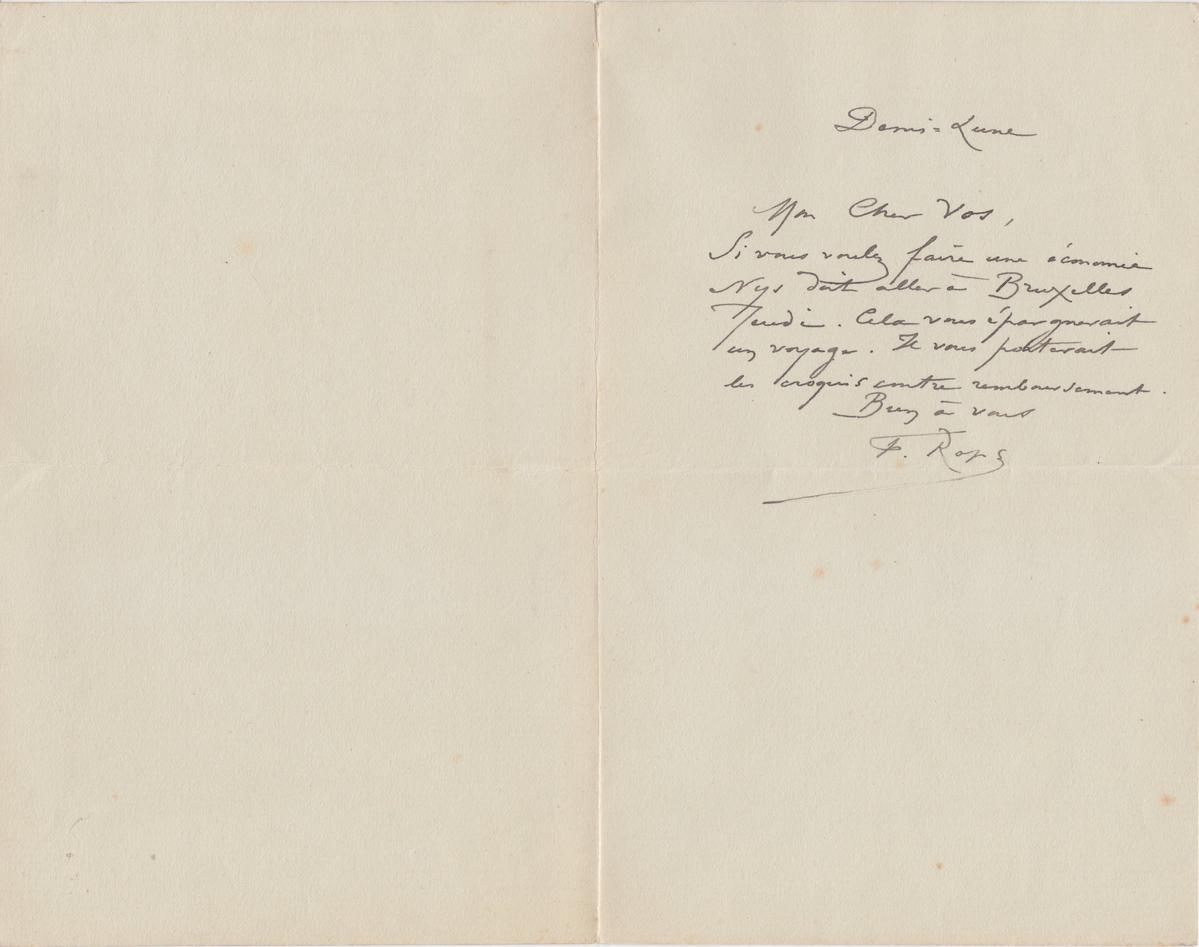 Demi=Lune
Mon Cher Vos,
Si vous voulez faire une économie
Nys doit aller à Bruxelles
Jeudi. Cela vous épargnerait
un voyage. Il vous porterait
les croquis contre remboursement.
Bien à vous
F. Rops